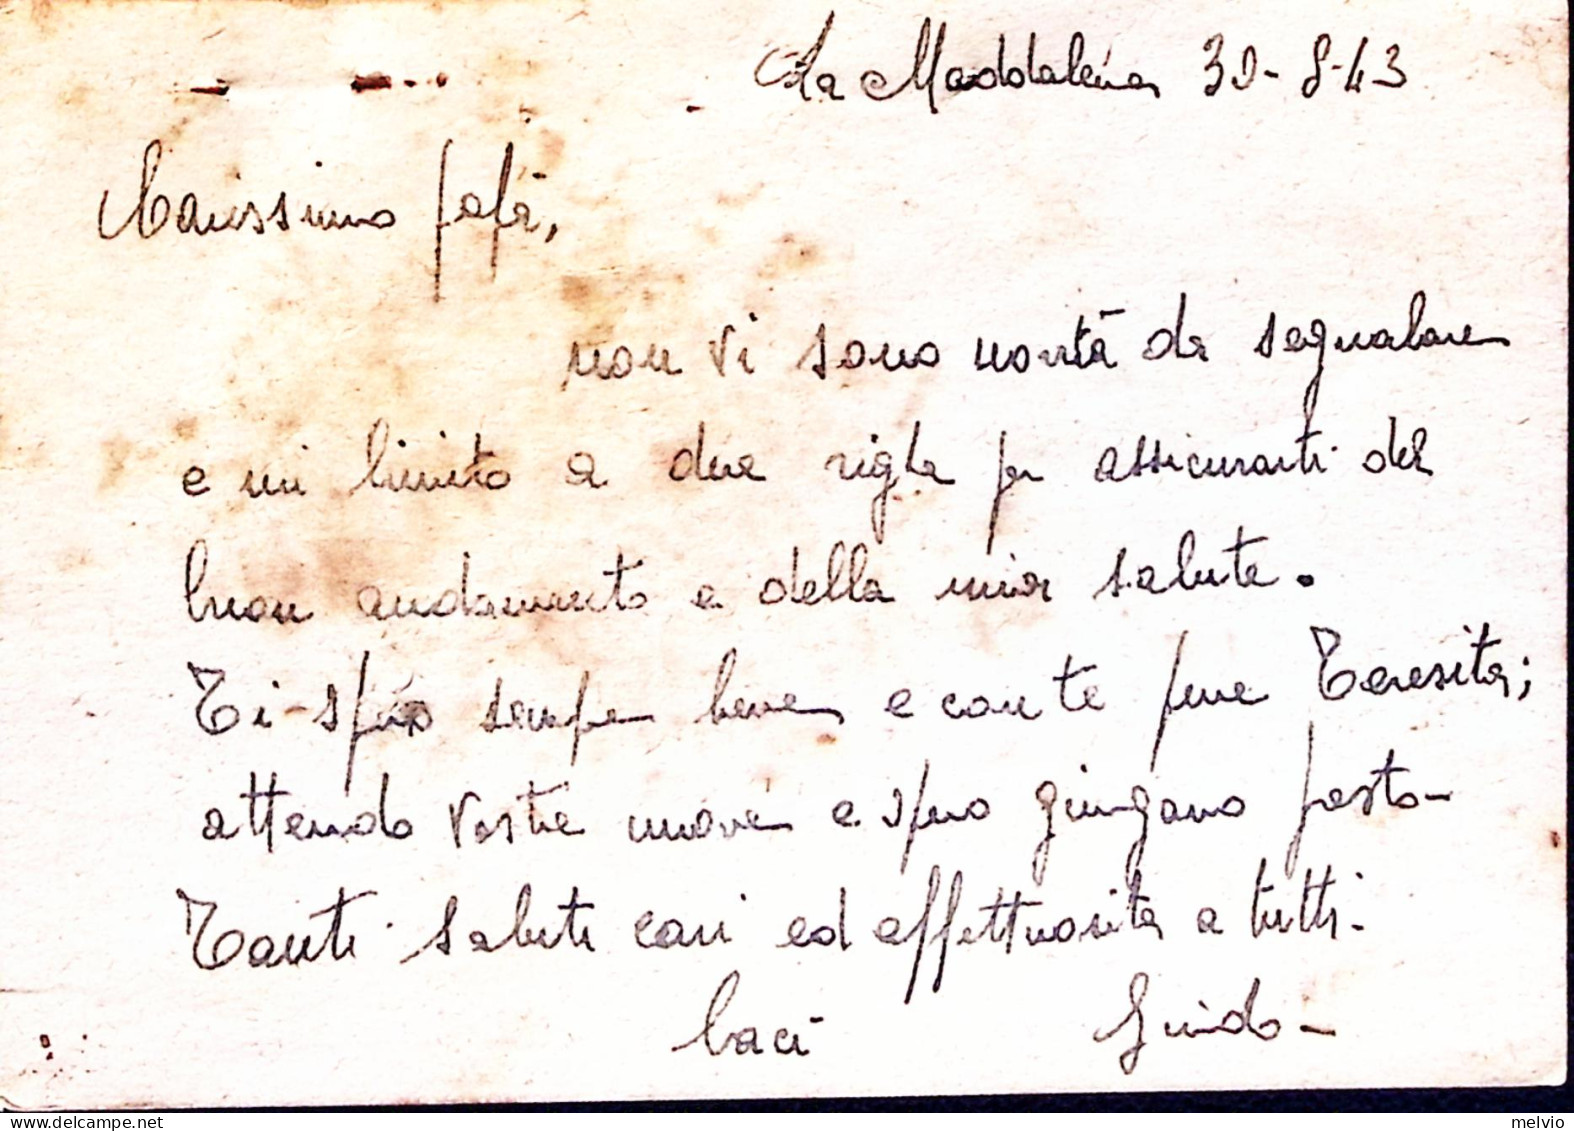 La Maddalena 30-8-43
Carissimo papà,
non vi sono novità da segnalare
e mi limito a due righe per assicurarti del
buon andamento e della mia salute.
Ti spero sempre bene e con te pure Teresita;
attendo vostre nuove e spero giungano presto-
Tanti saluti cari ed affettuosità a tutti.
baci Guido-
melvio